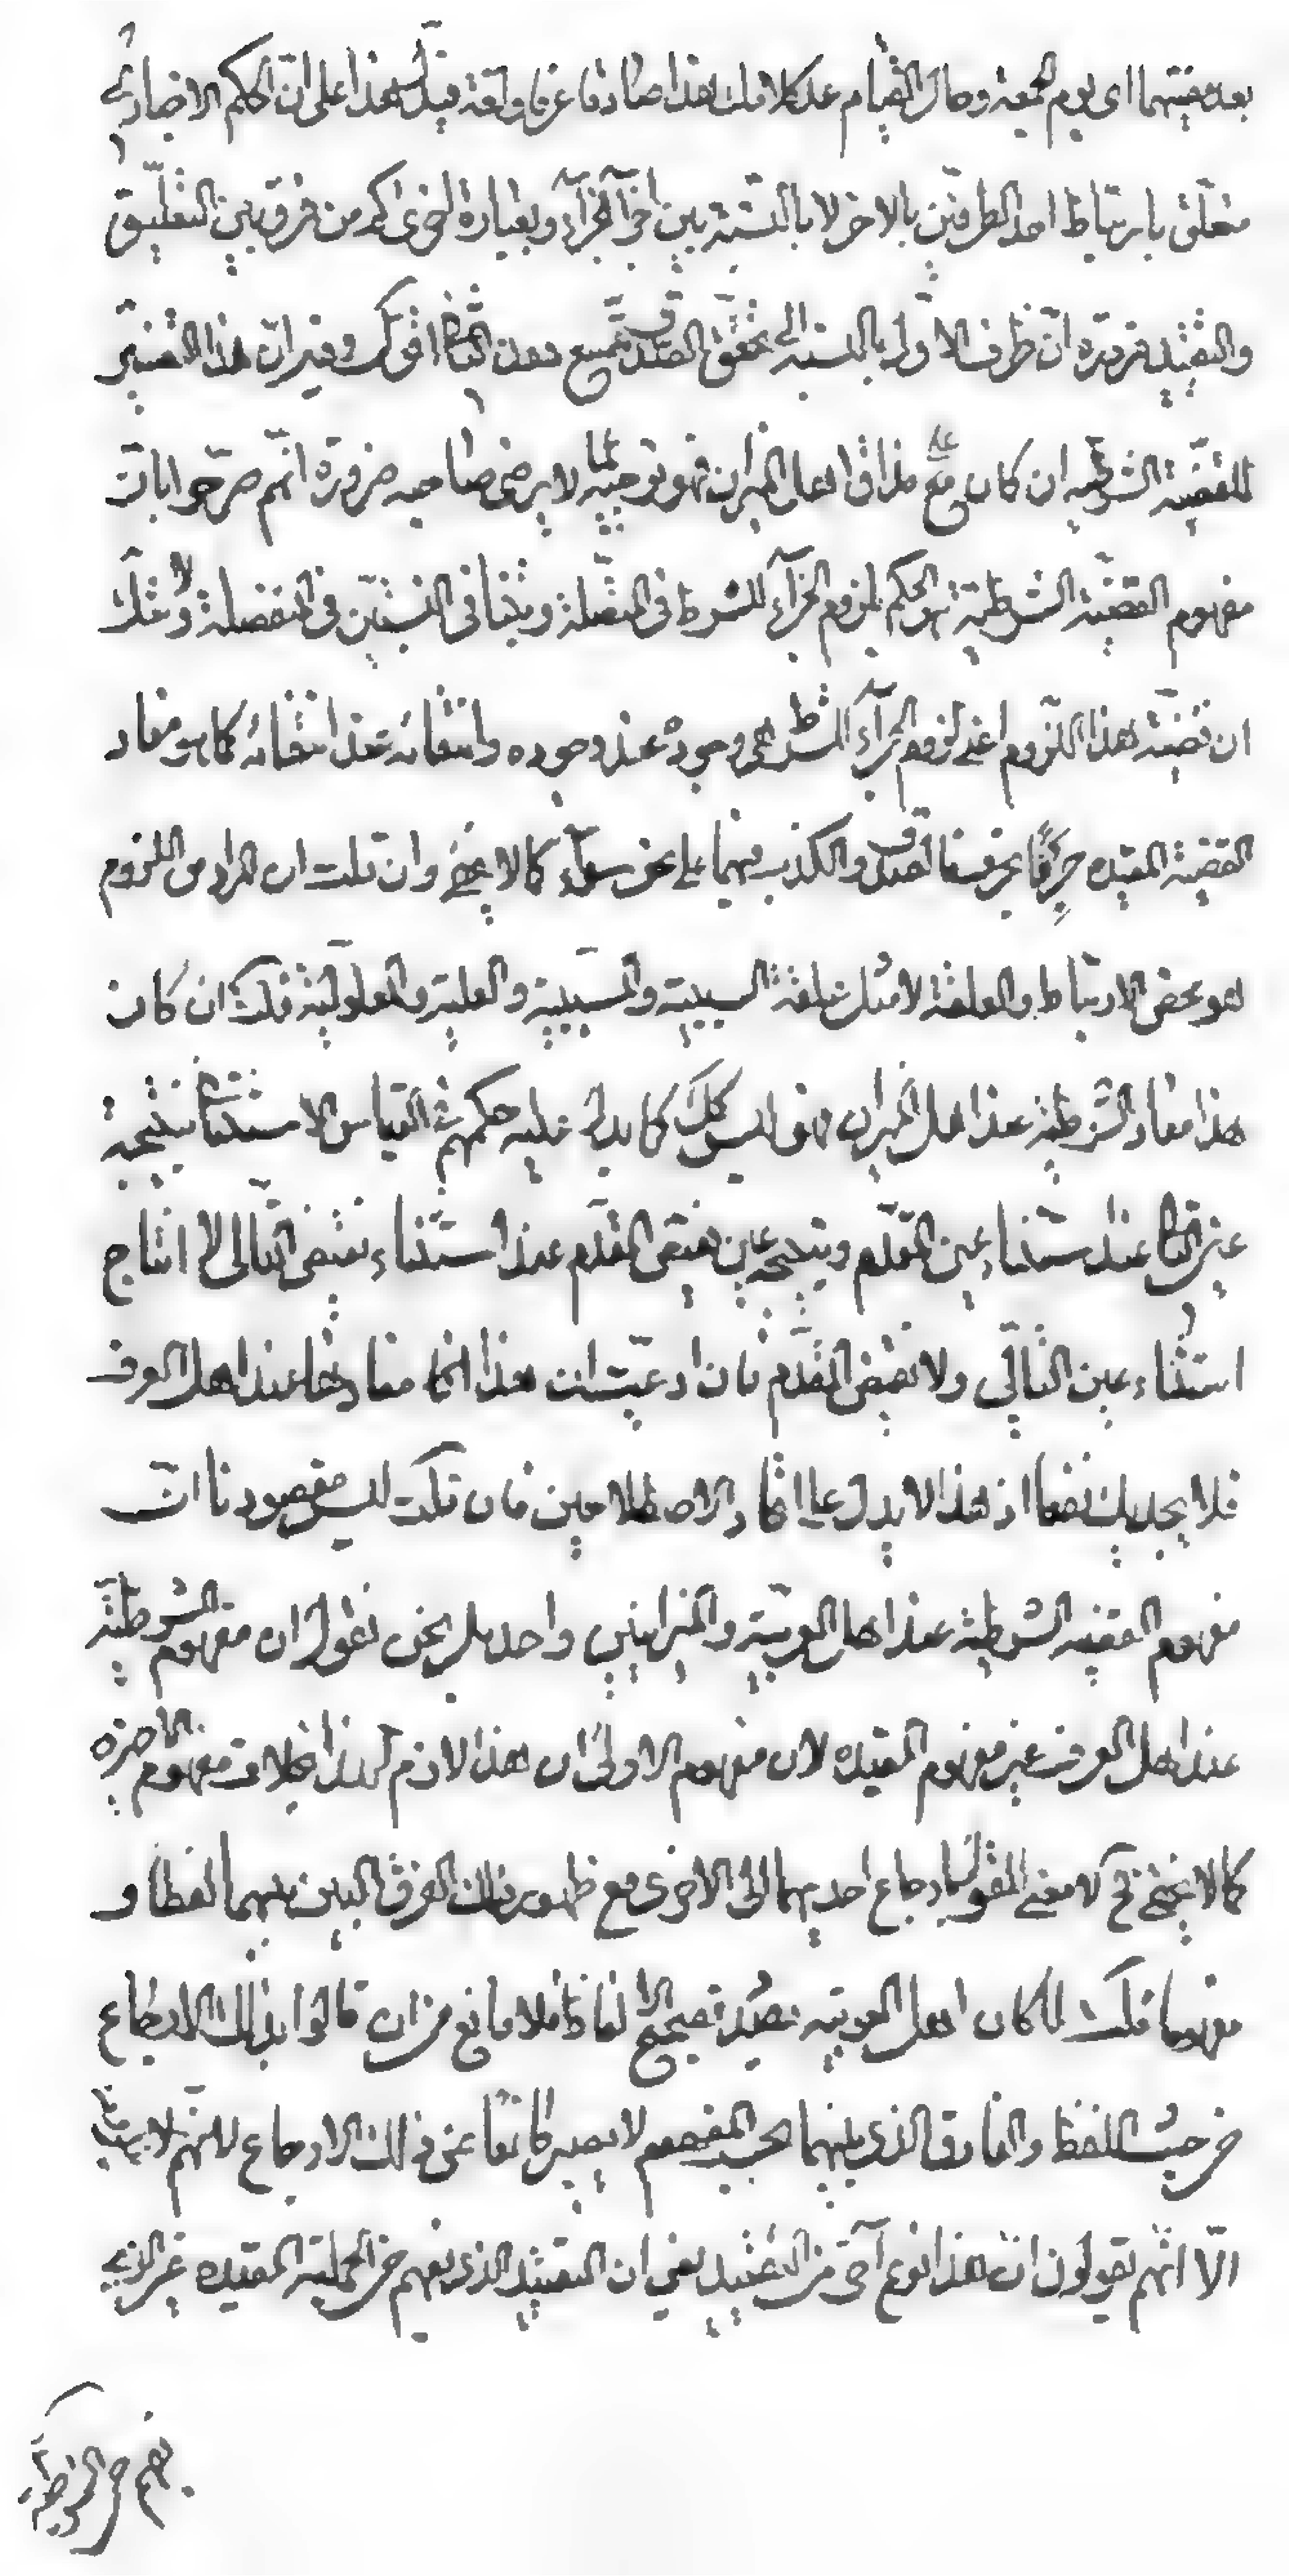 بعد مضيتهما اى يوم الجمعة وحال القيام عد كلامك هذا صادقا عرفا ولغة فيدل هذا على ان الحكم الاخبارى
متعلق بارتباط احد الطرفين بالاخر لا بالنسبة بين اجزآء الجزآء وبعبارة اخرى كم من فرق بين التعليق
والتقييد ضرورة ان ظرف الاول بالنسبة الى تحقق الصدق متسع دون الثانى اقول وفيه ان هذا التفسير
للقضية الشرطيه ان كان مع مذاق اهل الميزان فهو توجيه بما لا يرضى صاحبه ضرورة انهم صرحوا بان
مفهوم القضية الشرطية هو الحكم بلزوم الجزآء للشرط فى المتصلة وبتنافى النسبتين فى المنفصلة ولا شك
ان قضية هذا اللزوم اعنى لزوم الجزآء للشرط هى وجوده عند وجوده وانتفائه عند انتفائه كما هو مفاد
القضية المقيده فيهما على نحو سوآء كما لا يخفى وان قلت ان المراد من اللزوم
هو محض الارتباط والعلقة لا مثل علقة السببية والمسببية والعلية والمعلولية قلت ان كان
هذا مفاد الشرطية عند اهل الميزان فهو ليس كك كما يدل عليه حكمهم فى القياس الاستثنائى بنتيجة
عين التالى عند استثناء عين المقدم وبنتيجة عين نقيض المقدم عند استثناء نقيض التالى لا انتاج
استثناء عين التالى ولا نقيض المقدم فان ادعيت ان هذا انما مفادها عند اهل العرف
فلا يجديك نفعا اذ هذا لا يدل على اتحاد الاصطلاحين فان قلت ليس مقصودنا ان
مفهوم القضيه الشرطية عند اهل العربية والميزانيين واحد بل نحن نقول ان مفهوم الشرطية
عند اهل العرف غير مفهوم المقيده لان مفهوم الاولى ان هذا لازم لهذا بخلاف مفهوم الاخيره
كما لا يخفى فح لا معنى للقول بارجاع احديهما الى الاخرى مع ظهور ذلك الفرق البين بينهما لفظا و
مفهوما قلت لما كان اهل العربيه بصدد تصحيح الالفاظ فلا مانع من ان قالوا بذلك الارجاع
من حيث اللفظ والفارق الذى بينهما بحسب المفهوم لا يصير مانعا عن ذلك الارجاع للنهم
الا انهم يقولون ان هذا نوع آخر من التقييد يعنى ان التقييد الذى يفهم من الحملية المقيده غير الذى
يفهم من الشرطية